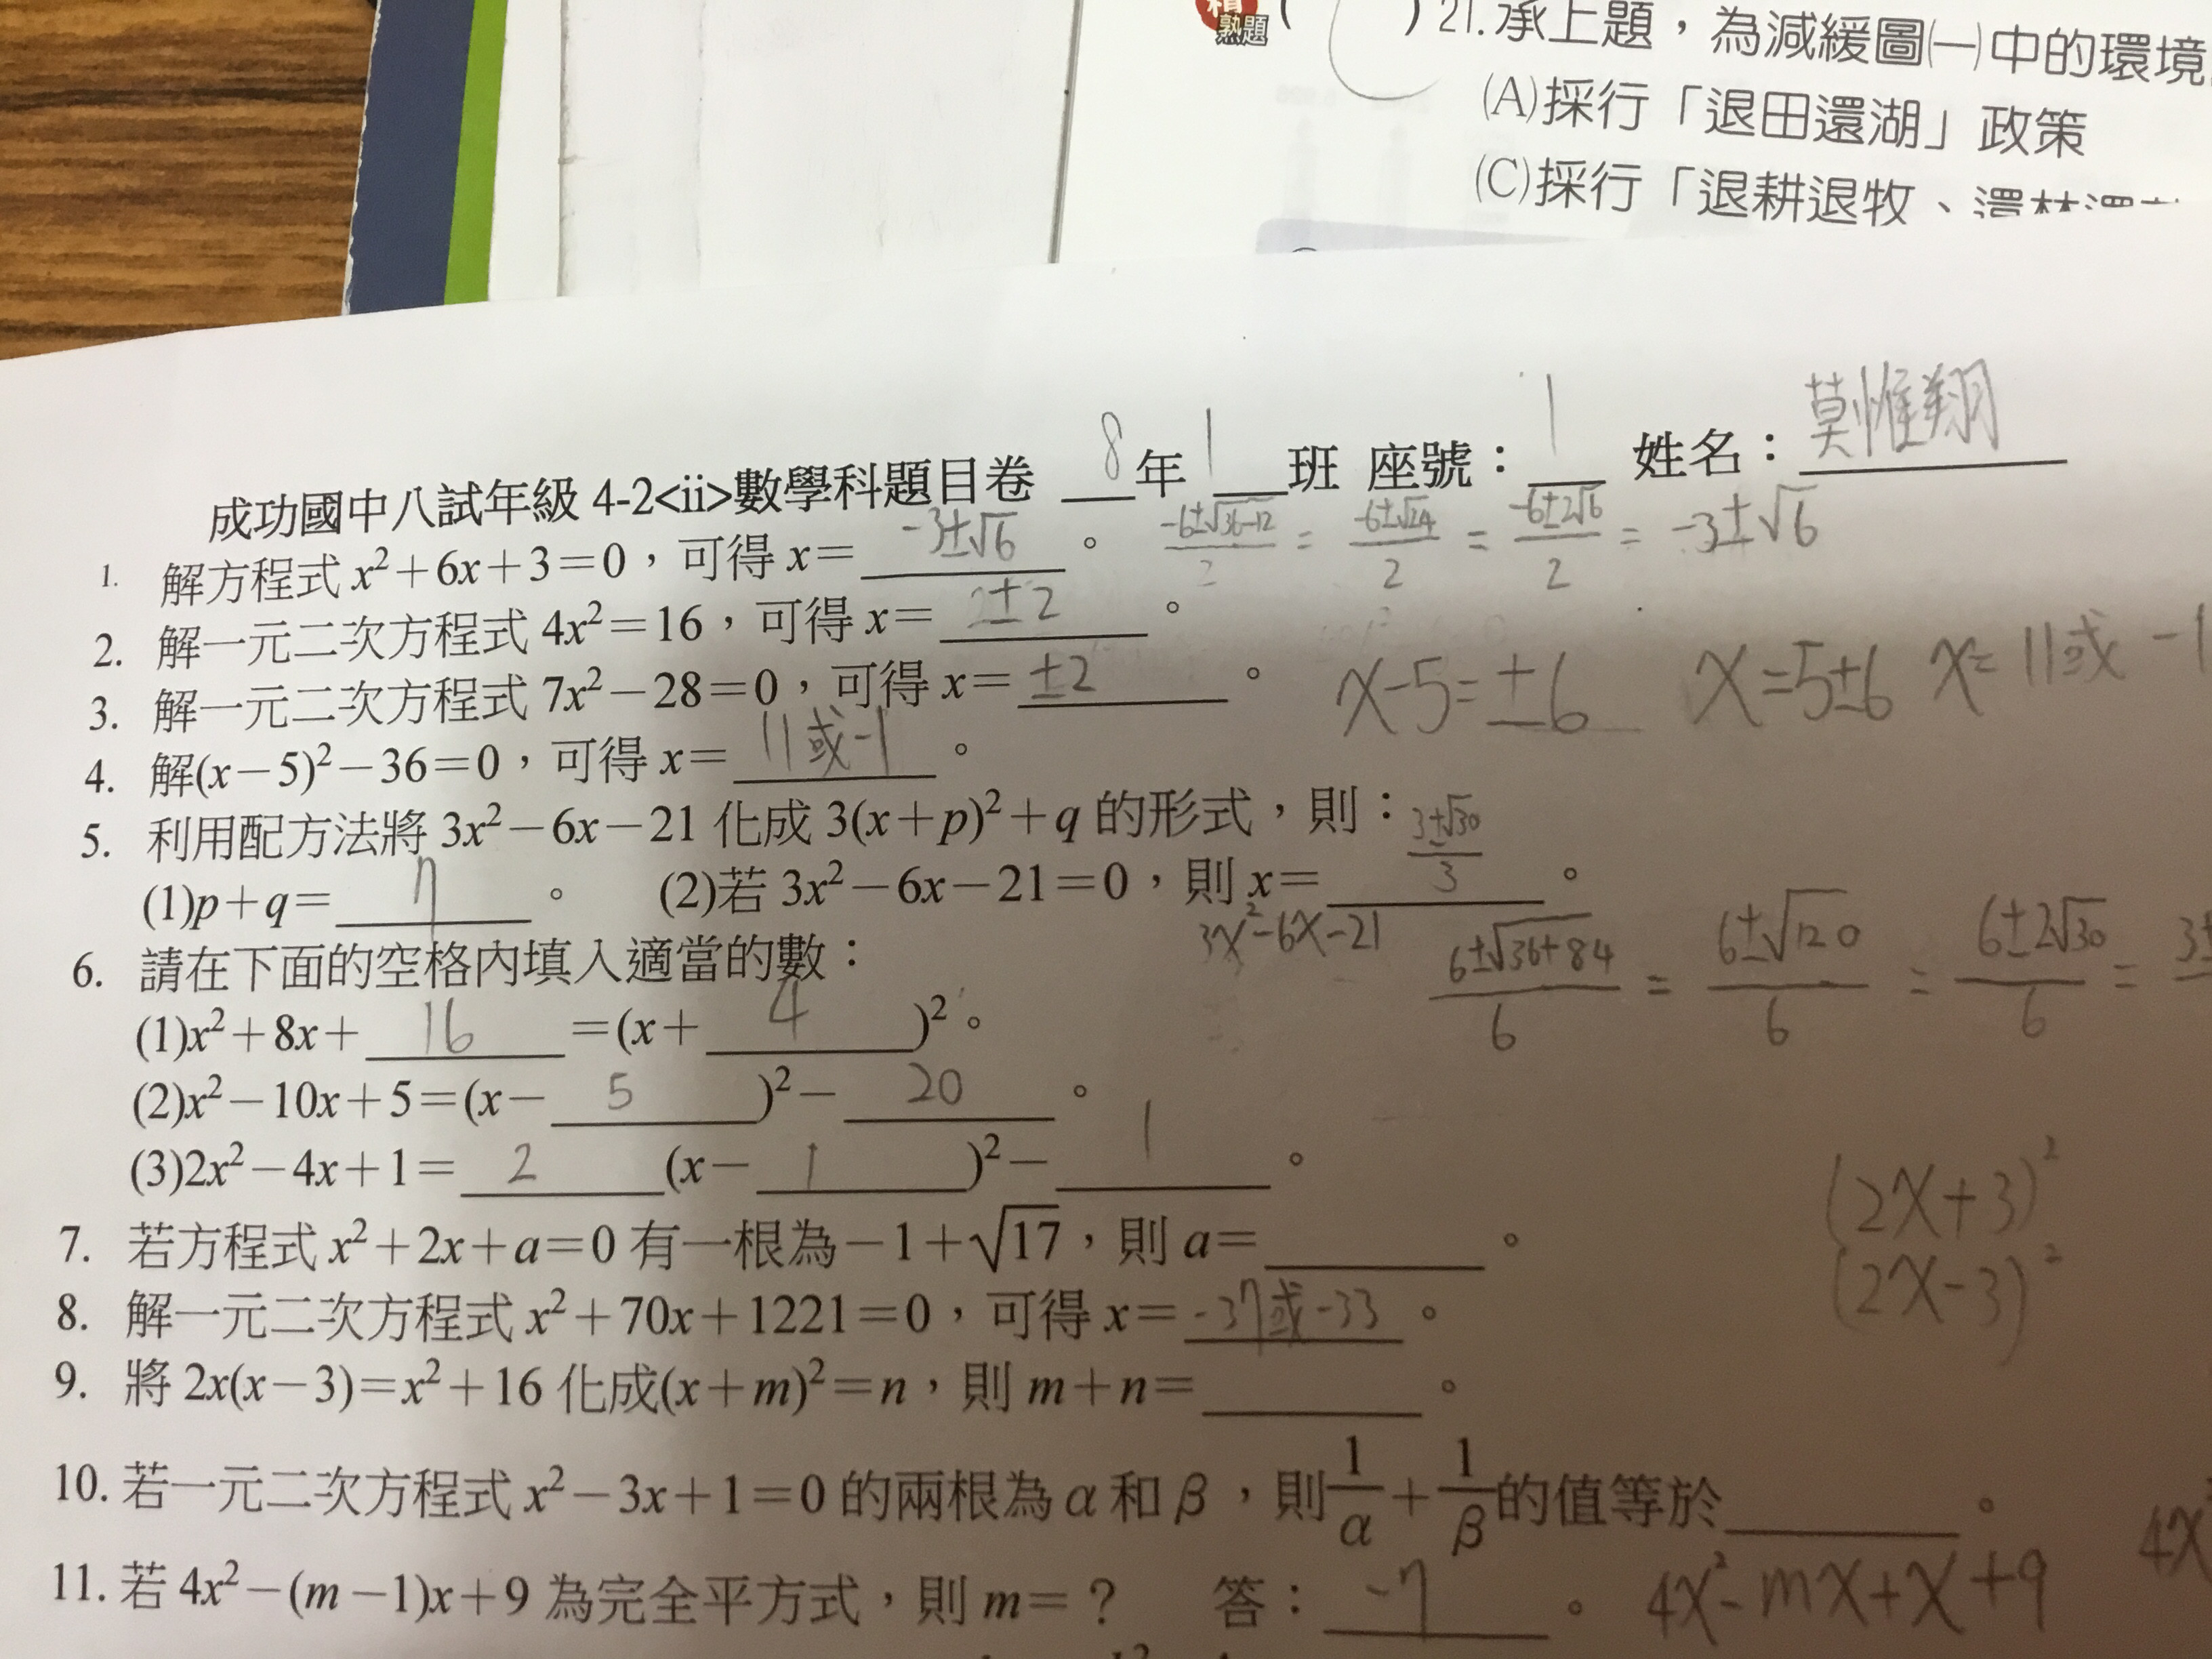 精熟題 ( ) 21.承上題，為減緩圖㈠中的環境
(A)採行「退田還湖」政策
(C)採行「退耕退牧、還林還
成功國中八試年級 4-2<ii>數學科題目卷 8年 1班 座號：1 姓名：莫惟翔
1. 解方程式 x²+6x+3=0，可得 x= -3±√6 。 (-6±√(36-12))/2 = (-6±√24)/2 = (-6±2√6)/2 = -3±√6
2. 解一元二次方程式 4x²=16，可得 x= ±2 。
3. 解一元二次方程式 7x²-28=0，可得 x= ±2 。 x-5=±6 x=5±6 x=11或-1
4. 解(x-5)²-36=0，可得 x= 11或-1 。
5. 利用配方法將 3x²-6x-21 化成 3(x+p)²+q 的形式，則：
(1)p+q= 7 。 (2)若 3x²-6x-21=0，則 x= (3±√30)/3 。
3x²-6x-21 (6±√(36+84))/6 = (6±√120)/6 = (6±2√30)/6 = 3±
6. 請在下面的空格內填入適當的數：
(1)x²+8x+ 16 =(x+ 4 )²。
(2)x²-10x+5=(x- 5 )²- 20 。
(3)2x²-4x+1= 2 (x- 1 )²- 1 。
(2x+3)²
7. 若方程式 x²+2x+a=0 有一根為-1+√17，則 a= 。
(2x-3)²
8. 解一元二次方程式 x²+70x+1221=0，可得 x= -37或-33 。
9. 將 2x(x-3)=x²+16 化成(x+m)²=n，則 m+n= 。
10. 若一元二次方程式 x²-3x+1=0 的兩根為 α 和 β，則 1/α + 1/β 的值等於 。
4x
11. 若 4x²-(m-1)x+9 為完全平方式，則 m=？ 答： -7 。 4x²-mx+x+9